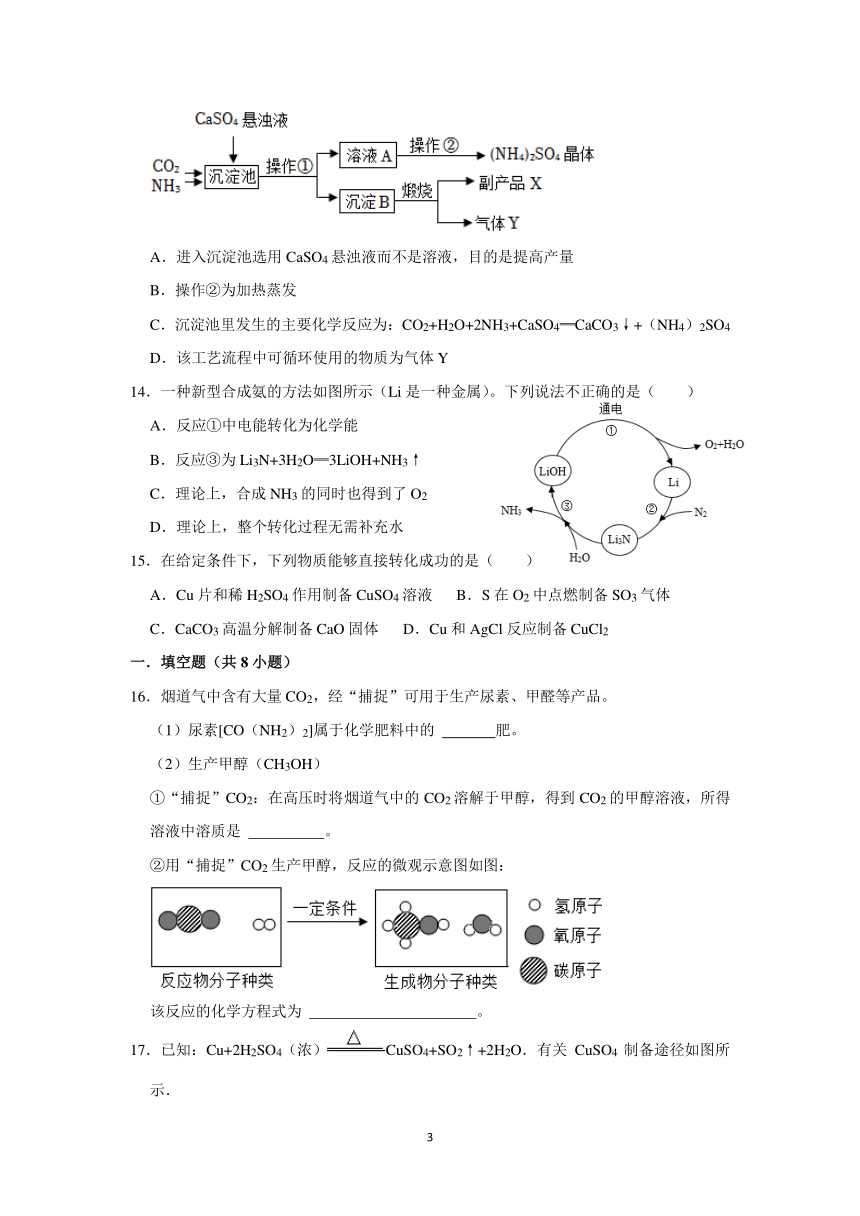 CaSO4 悬浊液
CO2
NH3
沉淀池
操作①
溶液A
操作②
(NH4)2SO4 晶体
沉淀B
煅烧
副产品X
气体Y
A．进入沉淀池选用 CaSO4 悬浊液而不是溶液，目的是提高产量
B．操作②为加热蒸发
C．沉淀池里发生的主要化学反应为：CO2+H2O+2NH3+CaSO4═CaCO3↓+（NH4）2SO4
D．该工艺流程中可循环使用的物质为气体 Y
14．一种新型合成氨的方法如图所示（Li 是一种金属）。下列说法不正确的是（　　）
A．反应①中电能转化为化学能
B．反应③为 Li3N+3H2O═3LiOH+NH3↑
C．理论上，合成 NH3 的同时也得到了 O2
D．理论上，整个转化过程无需补充水
通电
①
O2+H2O
LiOH
Li
NH3
③
②
N2
Li3N
H2O
15．在给定条件下，下列物质能够直接转化成功的是（　　）
A．Cu 片和稀 H2SO4 作用制备 CuSO4 溶液 B．S 在 O2 中点燃制备 SO3 气体
C．CaCO3 高温分解制备 CaO 固体 D．Cu 和 AgCl 反应制备 CuCl2
一．填空题（共 8 小题）
16．烟道气中含有大量 CO2，经“捕捉”可用于生产尿素、甲醛等产品。
（1）尿素[CO（NH2）2]属于化学肥料中的 ______肥。
（2）生产甲醇（CH3OH）
①“捕捉”CO2：在高压时将烟道气中的 CO2 溶解于甲醇，得到 CO2 的甲醇溶液，所得
溶液中溶质是 _________。
②用“捕捉”CO2 生产甲醇，反应的微观示意图如图：
一定条件
反应物分子种类
生成物分子种类
氢原子
氧原子
碳原子
该反应的化学方程式为 ____________________。
17．已知：Cu+2H2SO4（浓）═△═CuSO4+SO2↑+2H2O．有关 CuSO4 制备途径如图所
示．
3